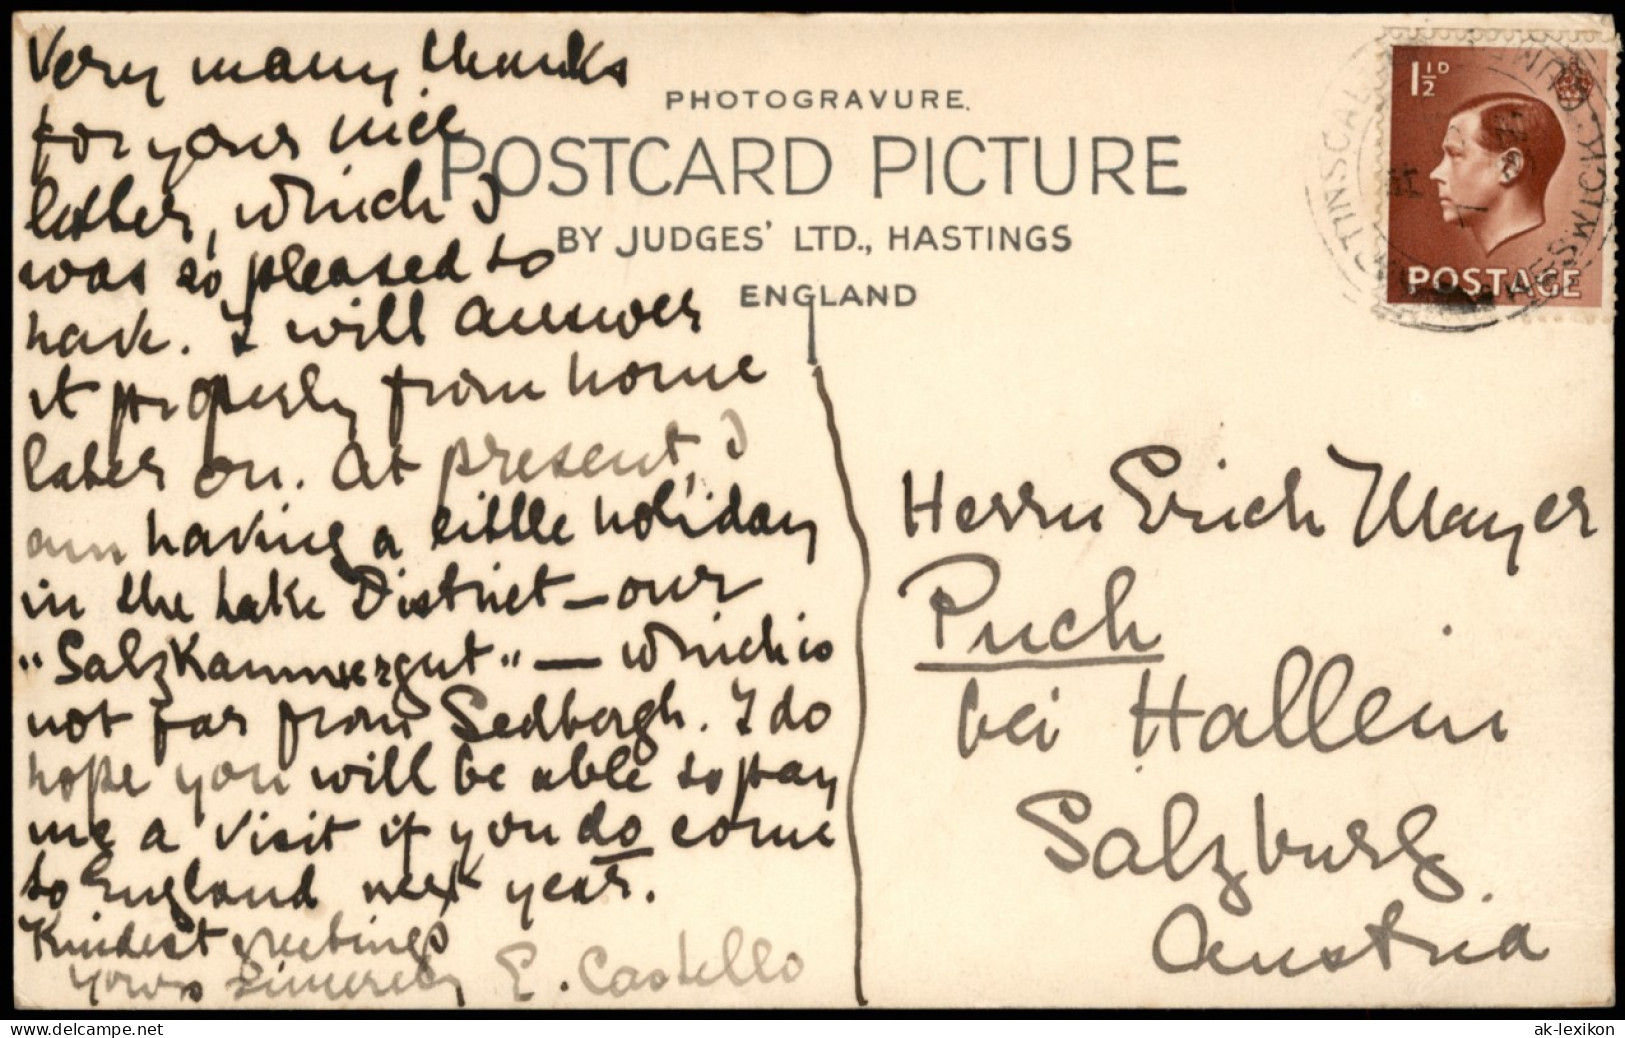 Very many thanks
for your nice
letter, which I
was so pleased to
have. I will answer
it properly from home
later on. At present, I
am having a little holiday
in the Lake District – our
"Salzkammergut" – which is
not far from Sedbergh. I do
hope you will be able to pay
me a visit if you do come
to England next year.
Kindest greetings
yours sincerely E. Castello
PHOTOGRAVURE.
POSTCARD PICTURE
BY JUDGES' LTD., HASTINGS
ENGLAND
1½D
POSTAGE
KESWICK
Herrn Erich Mayer
Puch
bei Hallein
Salzburg
Austria
ak-ansichtskarten.de
ak-lexikon